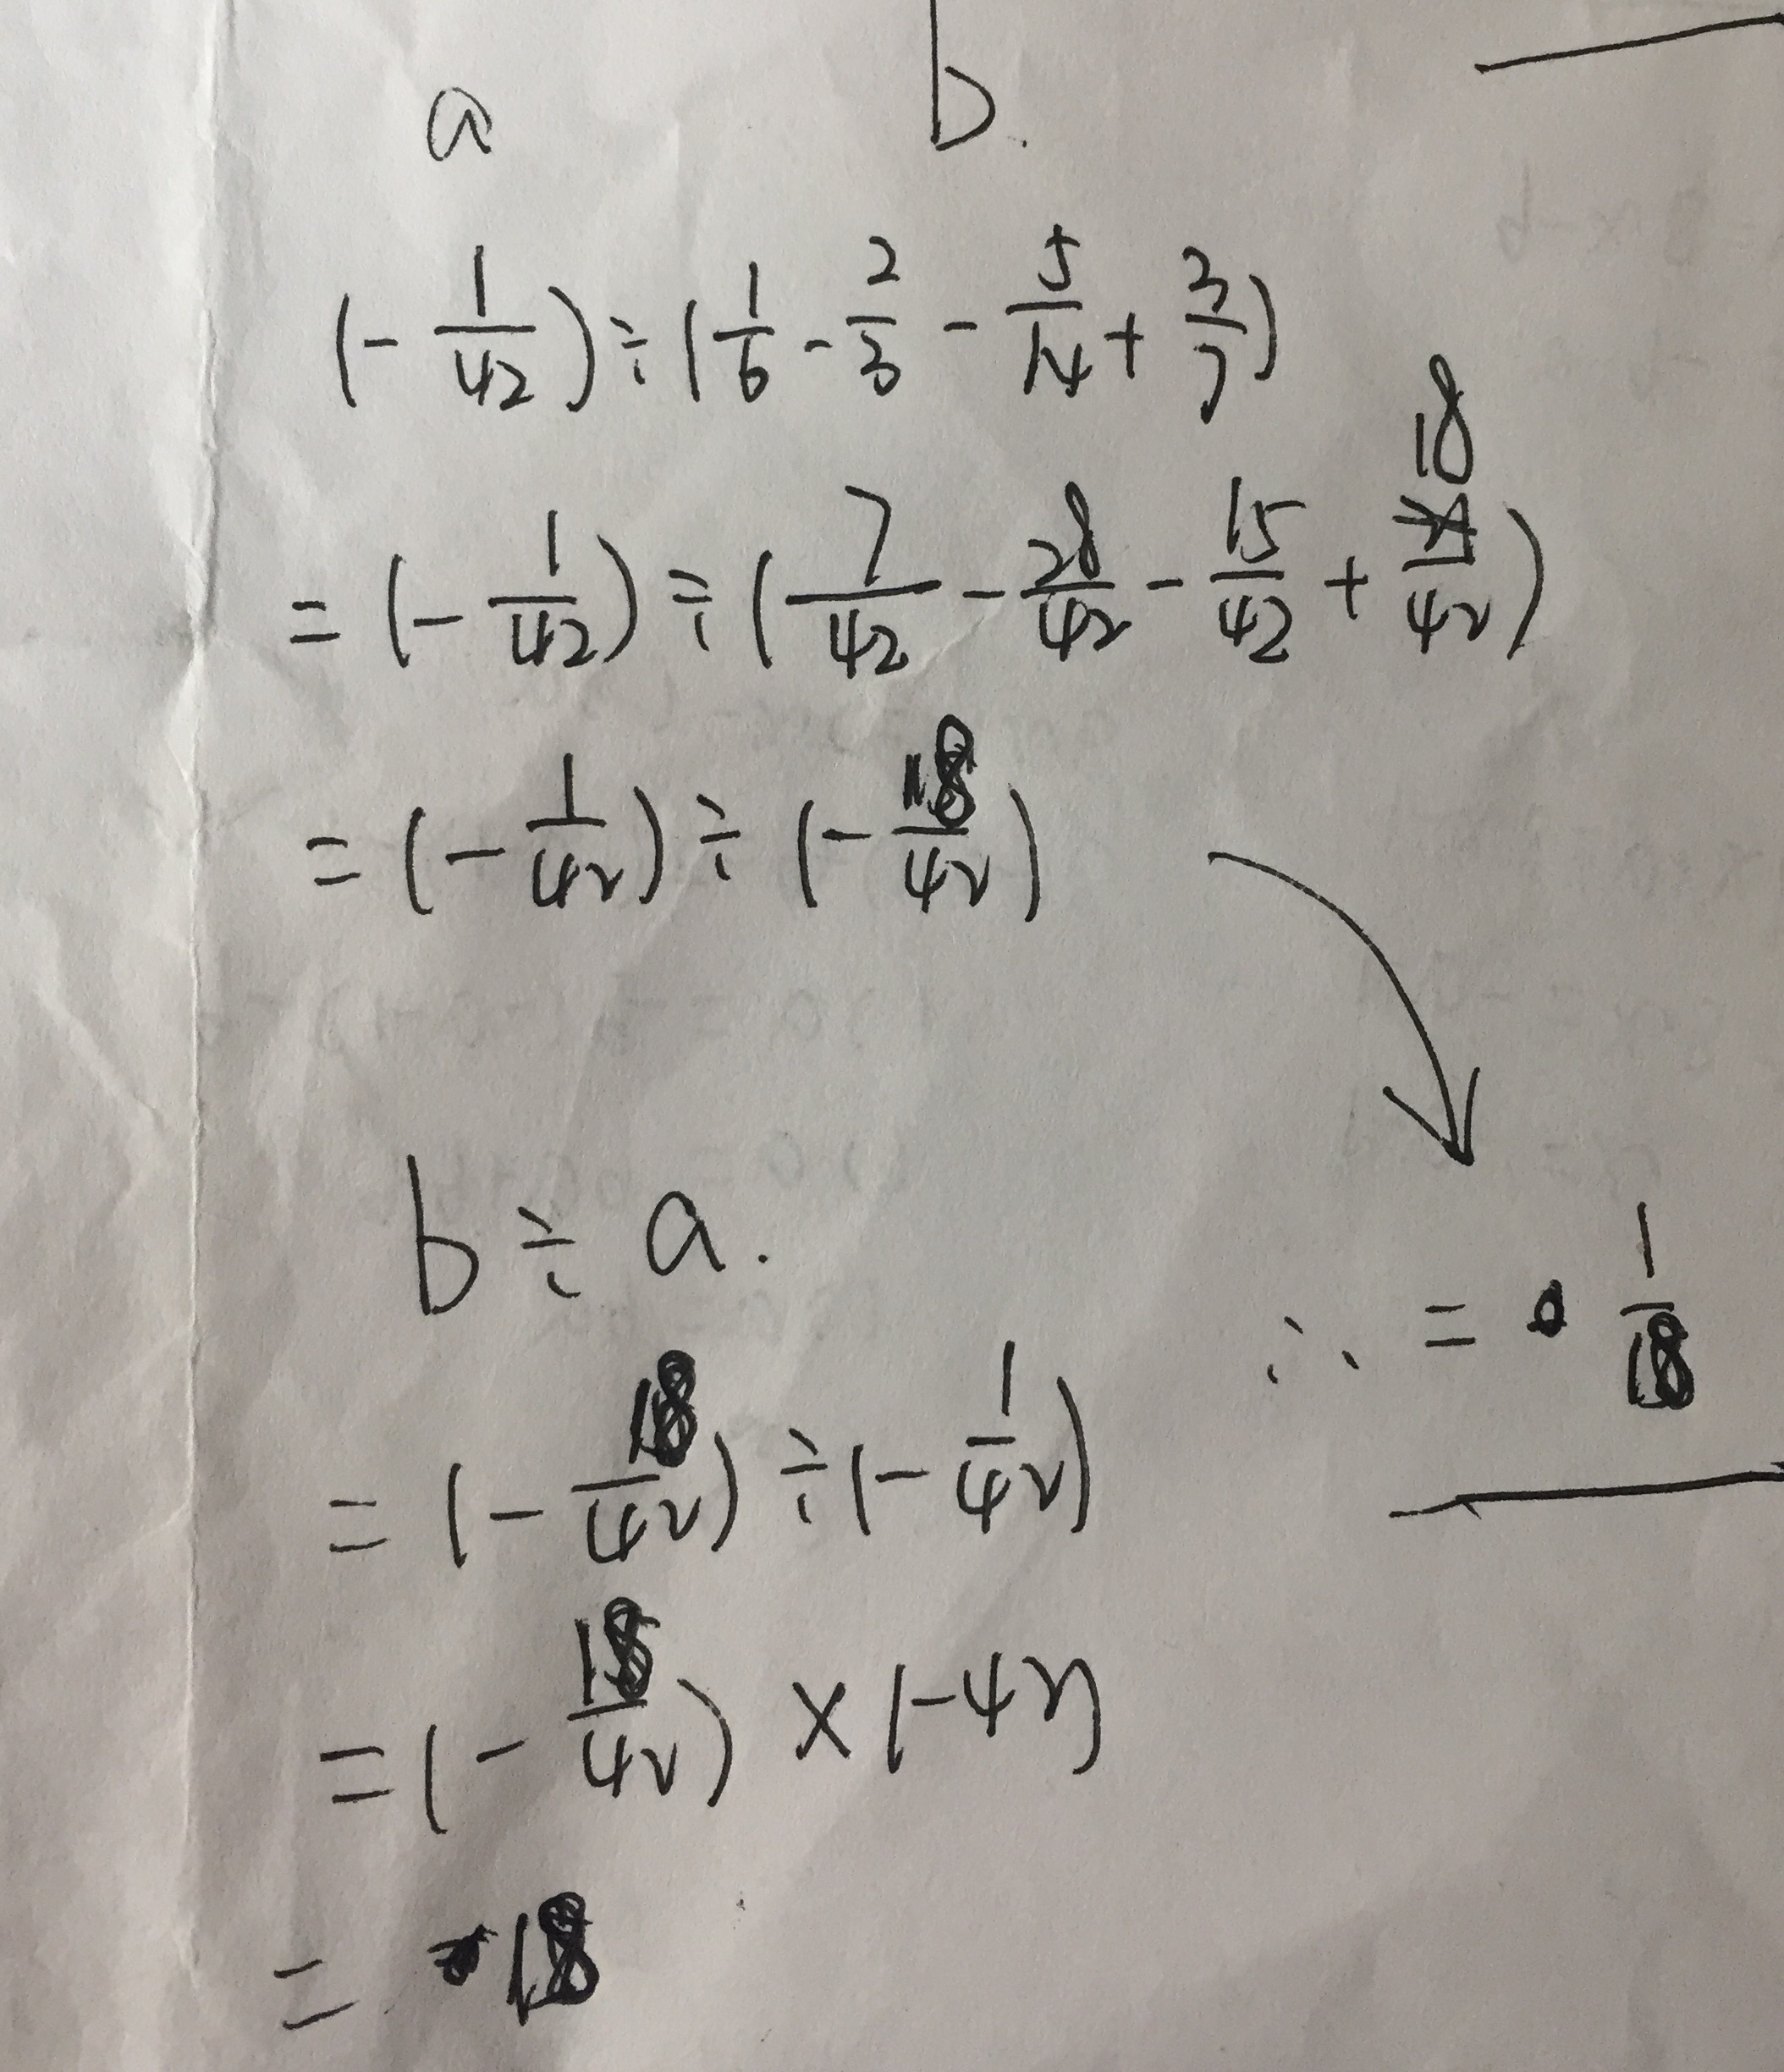 a b.
(-1/42)÷(1/6-2/3-5/14+3/7)
=(-1/42)÷(7/42-28/42-15/42+18/42)
=(-1/42)÷(-18/42)
b÷a.
∴ = 1/18
=(-18/42)÷(-1/42)
=(-18/42)×(-42)
=18